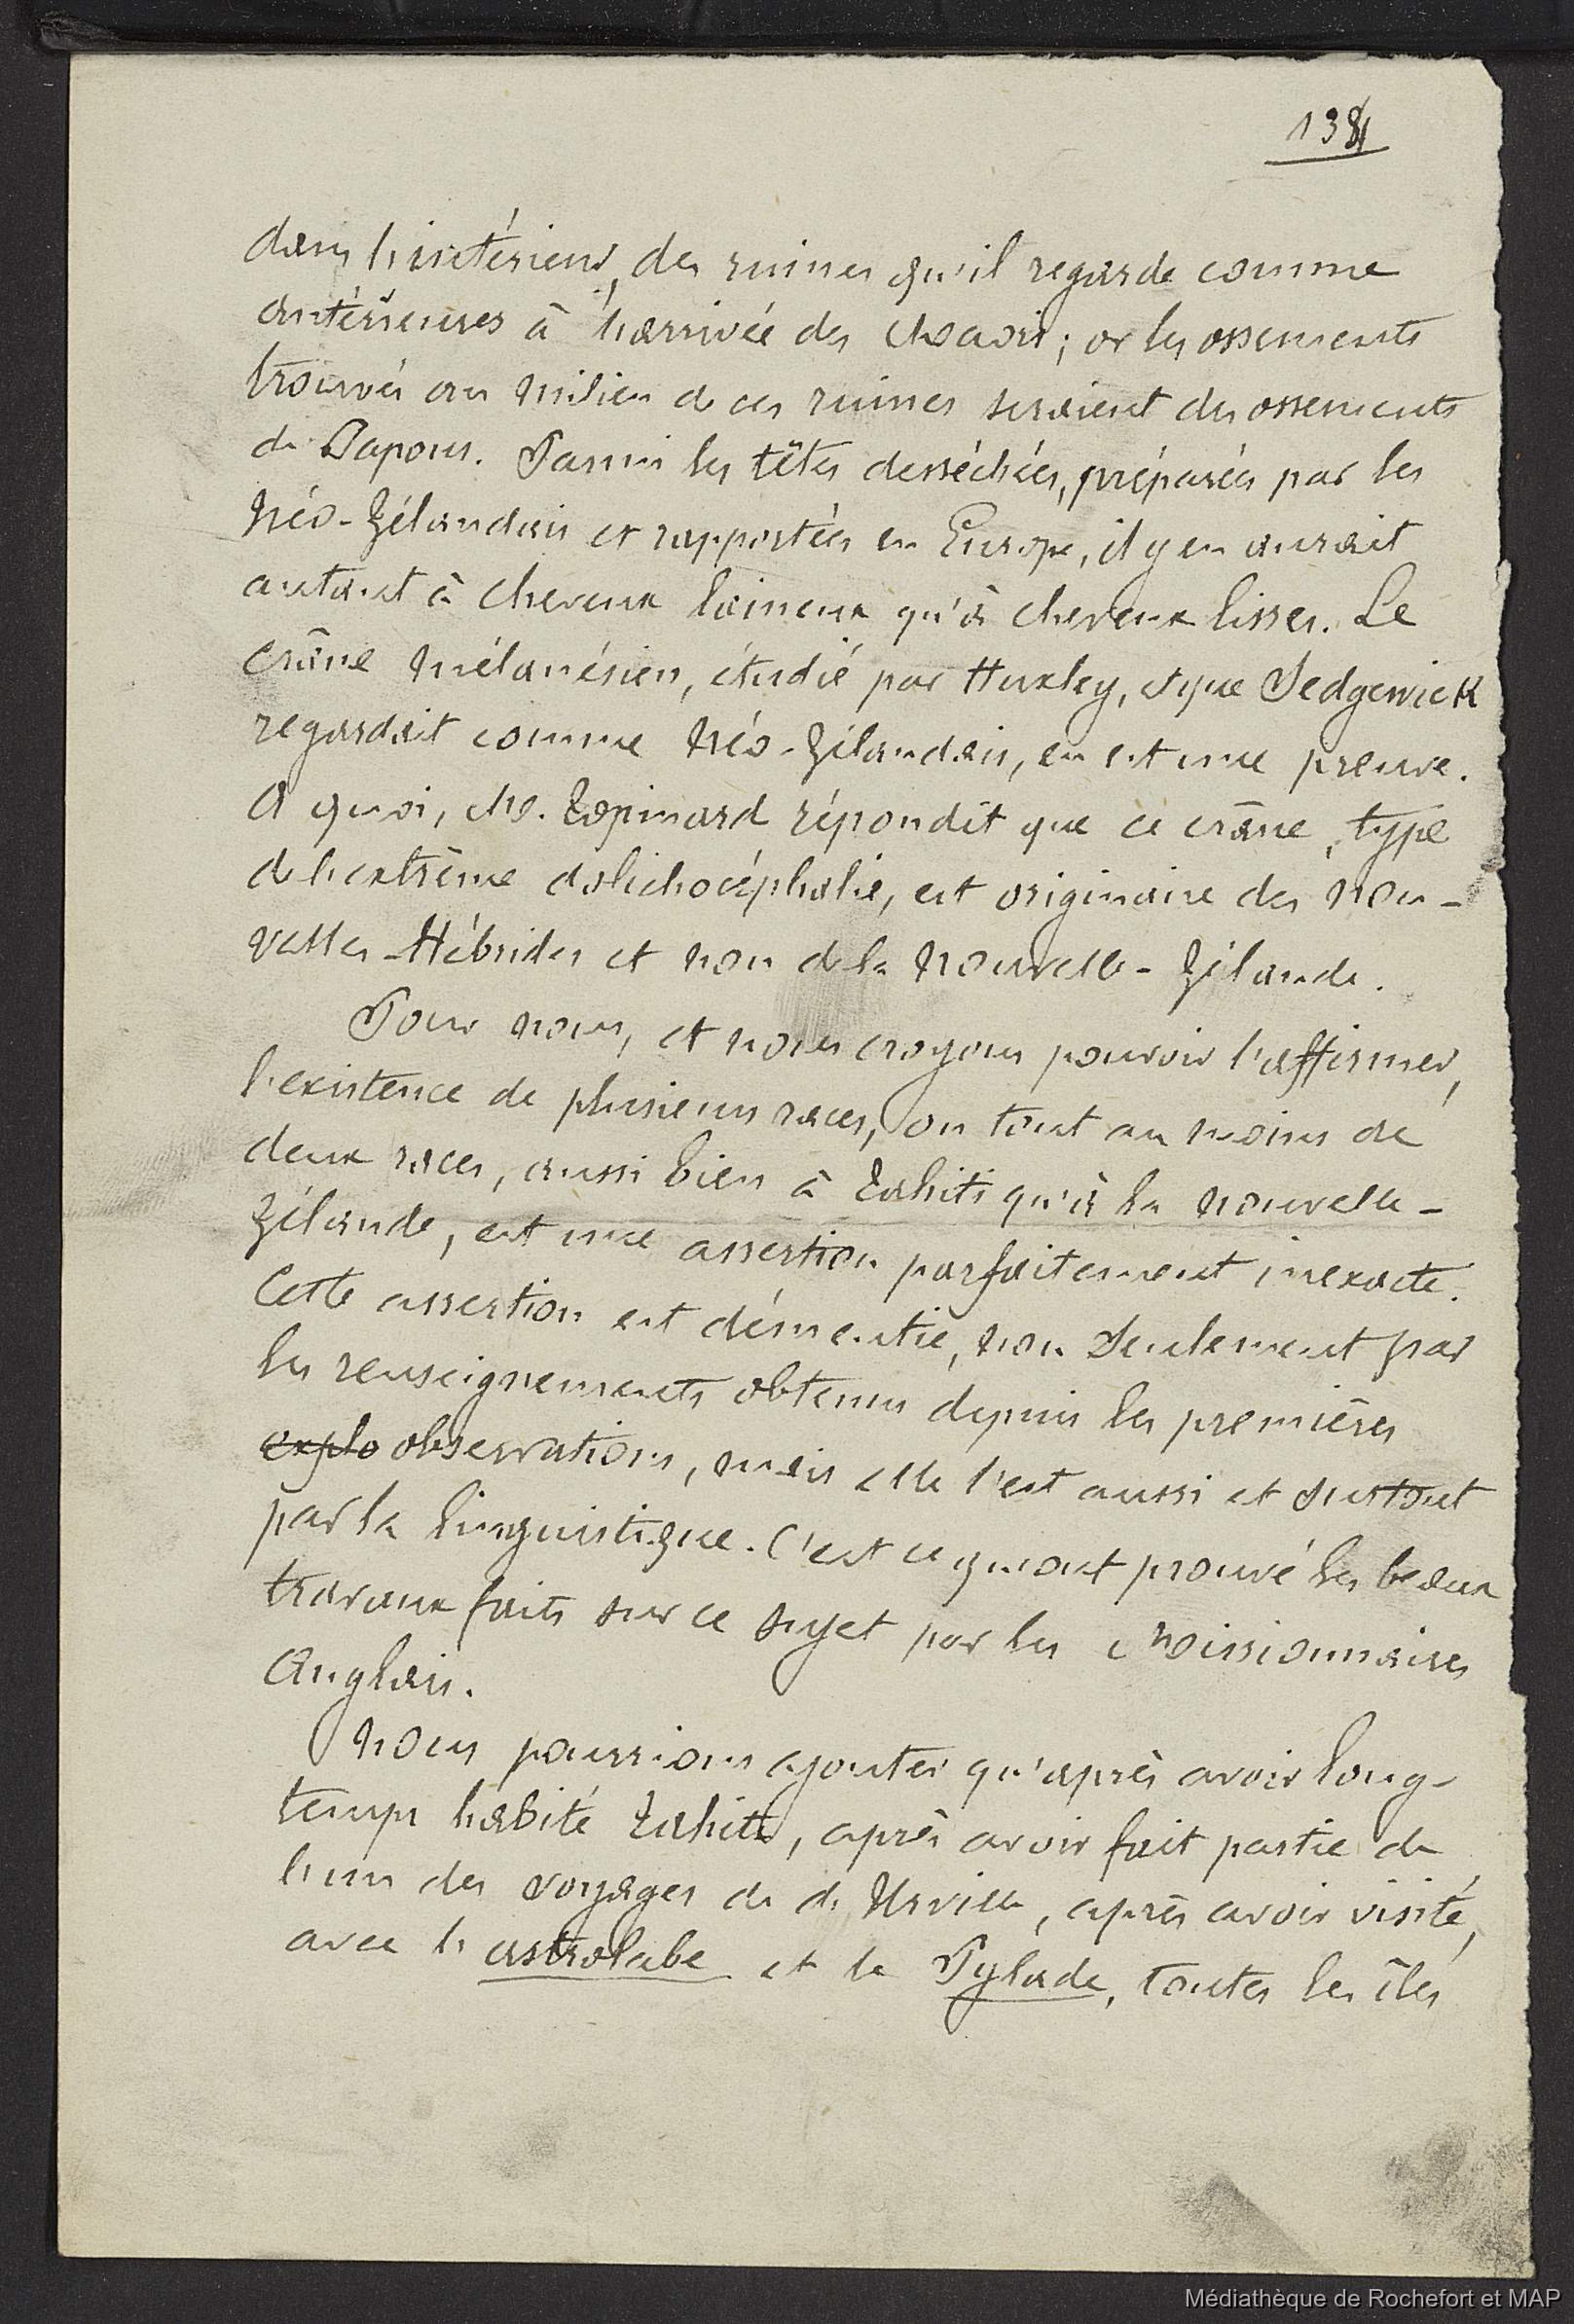 138
dans l'intérieur, des ruines qu'il regarde comme
antérieures à l'arrivée des Maoris; or les ossements
trouvés au milieu de ces ruines seraient des ossements
de Papous. Parmi les têtes desséchées, préparées par les
Néo-Zélandais et rapportées en Europe, il y en aurait
autant à cheveux laineux qu'à cheveux lisses. Le
crâne mélanésien, étudié par Huxley, et que Sedgewick
regardait comme Néo-Zélandais, en est une preuve.
A quoi, M. Topinard répondit que ce crâne, type
de l'extrême dolichocéphalie, est originaire des Nou-
velles-Hébrides et non de la Nouvelle-Zélande.
Pour nous, et nous croyons pouvoir l'affirmer,
l'existence de plusieurs races, ou tout au moins de
deux races, aussi bien à Tahiti qu'à la Nouvelle-
Zélande, est une assertion parfaitement inexacte.
Cette assertion est démentie, non seulement par
les renseignements obtenus depuis les premières
explo observations, mais elle l'est aussi et surtout
par la linguistique. C'est ce qu'ont prouvé les beaux
travaux faits sur ce sujet par les Missionnaires
Anglais.
Nous pourrions ajouter qu'après avoir long-
temps habité Tahiti, après avoir fait partie de
l'un des voyages de d'Urville, après avoir visité,
avec l'astrolabe et le Pylade, toutes les îles
Médiathèque de Rochefort et MAP